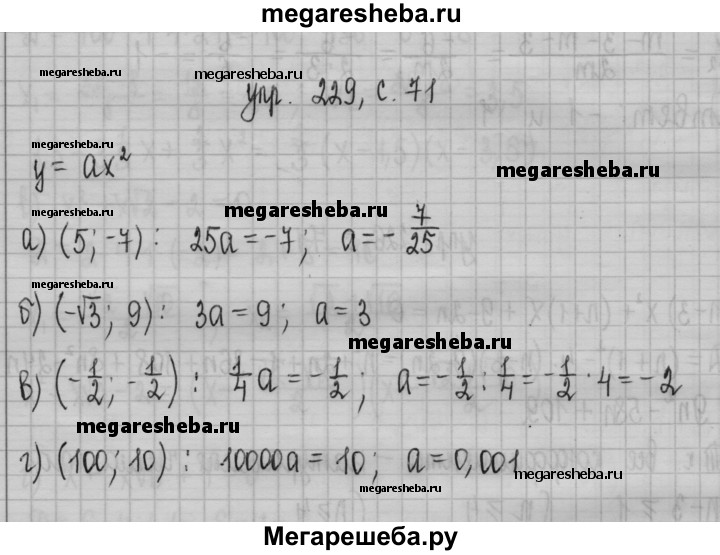 megaresheba.ru
megaresheba.ru megaresheba.ru
упр. 229, с. 71
megaresheba.ru
y = ax² megaresheba.ru
megaresheba.ru megaresheba.ru
а) (5; -7) : 25a = -7; a = - 7/25
megaresheba.ru
б) (-√3; 9) : 3a = 9; a = 3
megaresheba.ru
в) (-1/2; -1/2) : 1/4 a = -1/2; a = -1/2 : 1/4 = -1/2 · 4 = -2
megaresheba.ru
г) (100; 10) : 10000a = 10; a = 0,001
megaresheba.ru megaresheba.ru
Мегарешеба.ру